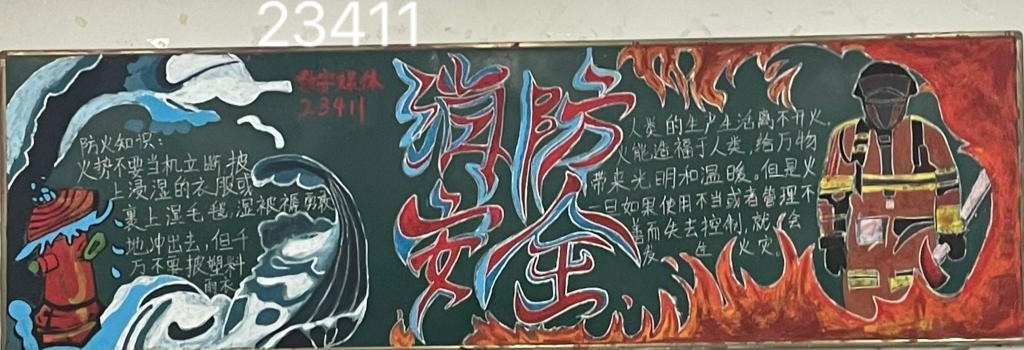 23411
数字媒体
23411
消防
安全
防火知识:
火势不要当机立断披
上浸湿的衣服或
裹上湿毛毯,湿被褥勇敢
地冲出去,但千
万不要披塑料
雨衣
人类的生产生活离不开火,
火能造福于人类,给万物
带来光明和温暖,但是火
一旦如果使用不当或者管理不
善而失去控制,就会
发生火灾。